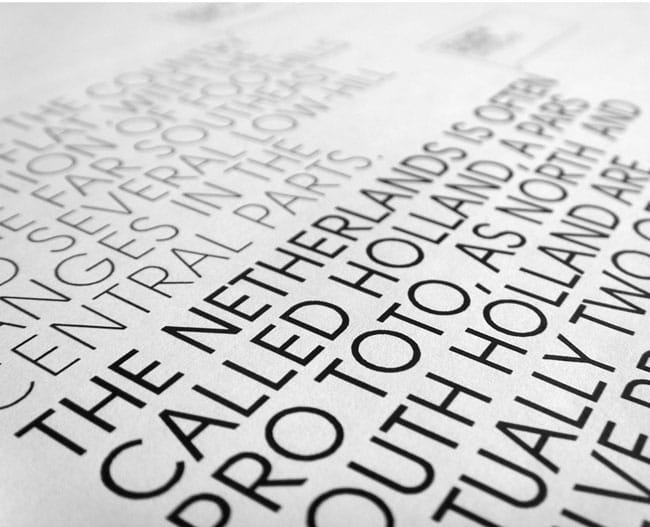 THE COUNTRY
FLAT, WITH THE
TION OF FOOTHILLS
E FAR SOUTHEAST
SEVERAL LOW-HILL
ANGES IN THE
CENTRAL PARTS.
THE NETHERLANDS IS OFTEN
CALLED HOLLAND, A PARS
PRO TOTO, AS NORTH AND
OUTH HOLLAND ARE
TUALLY TWO